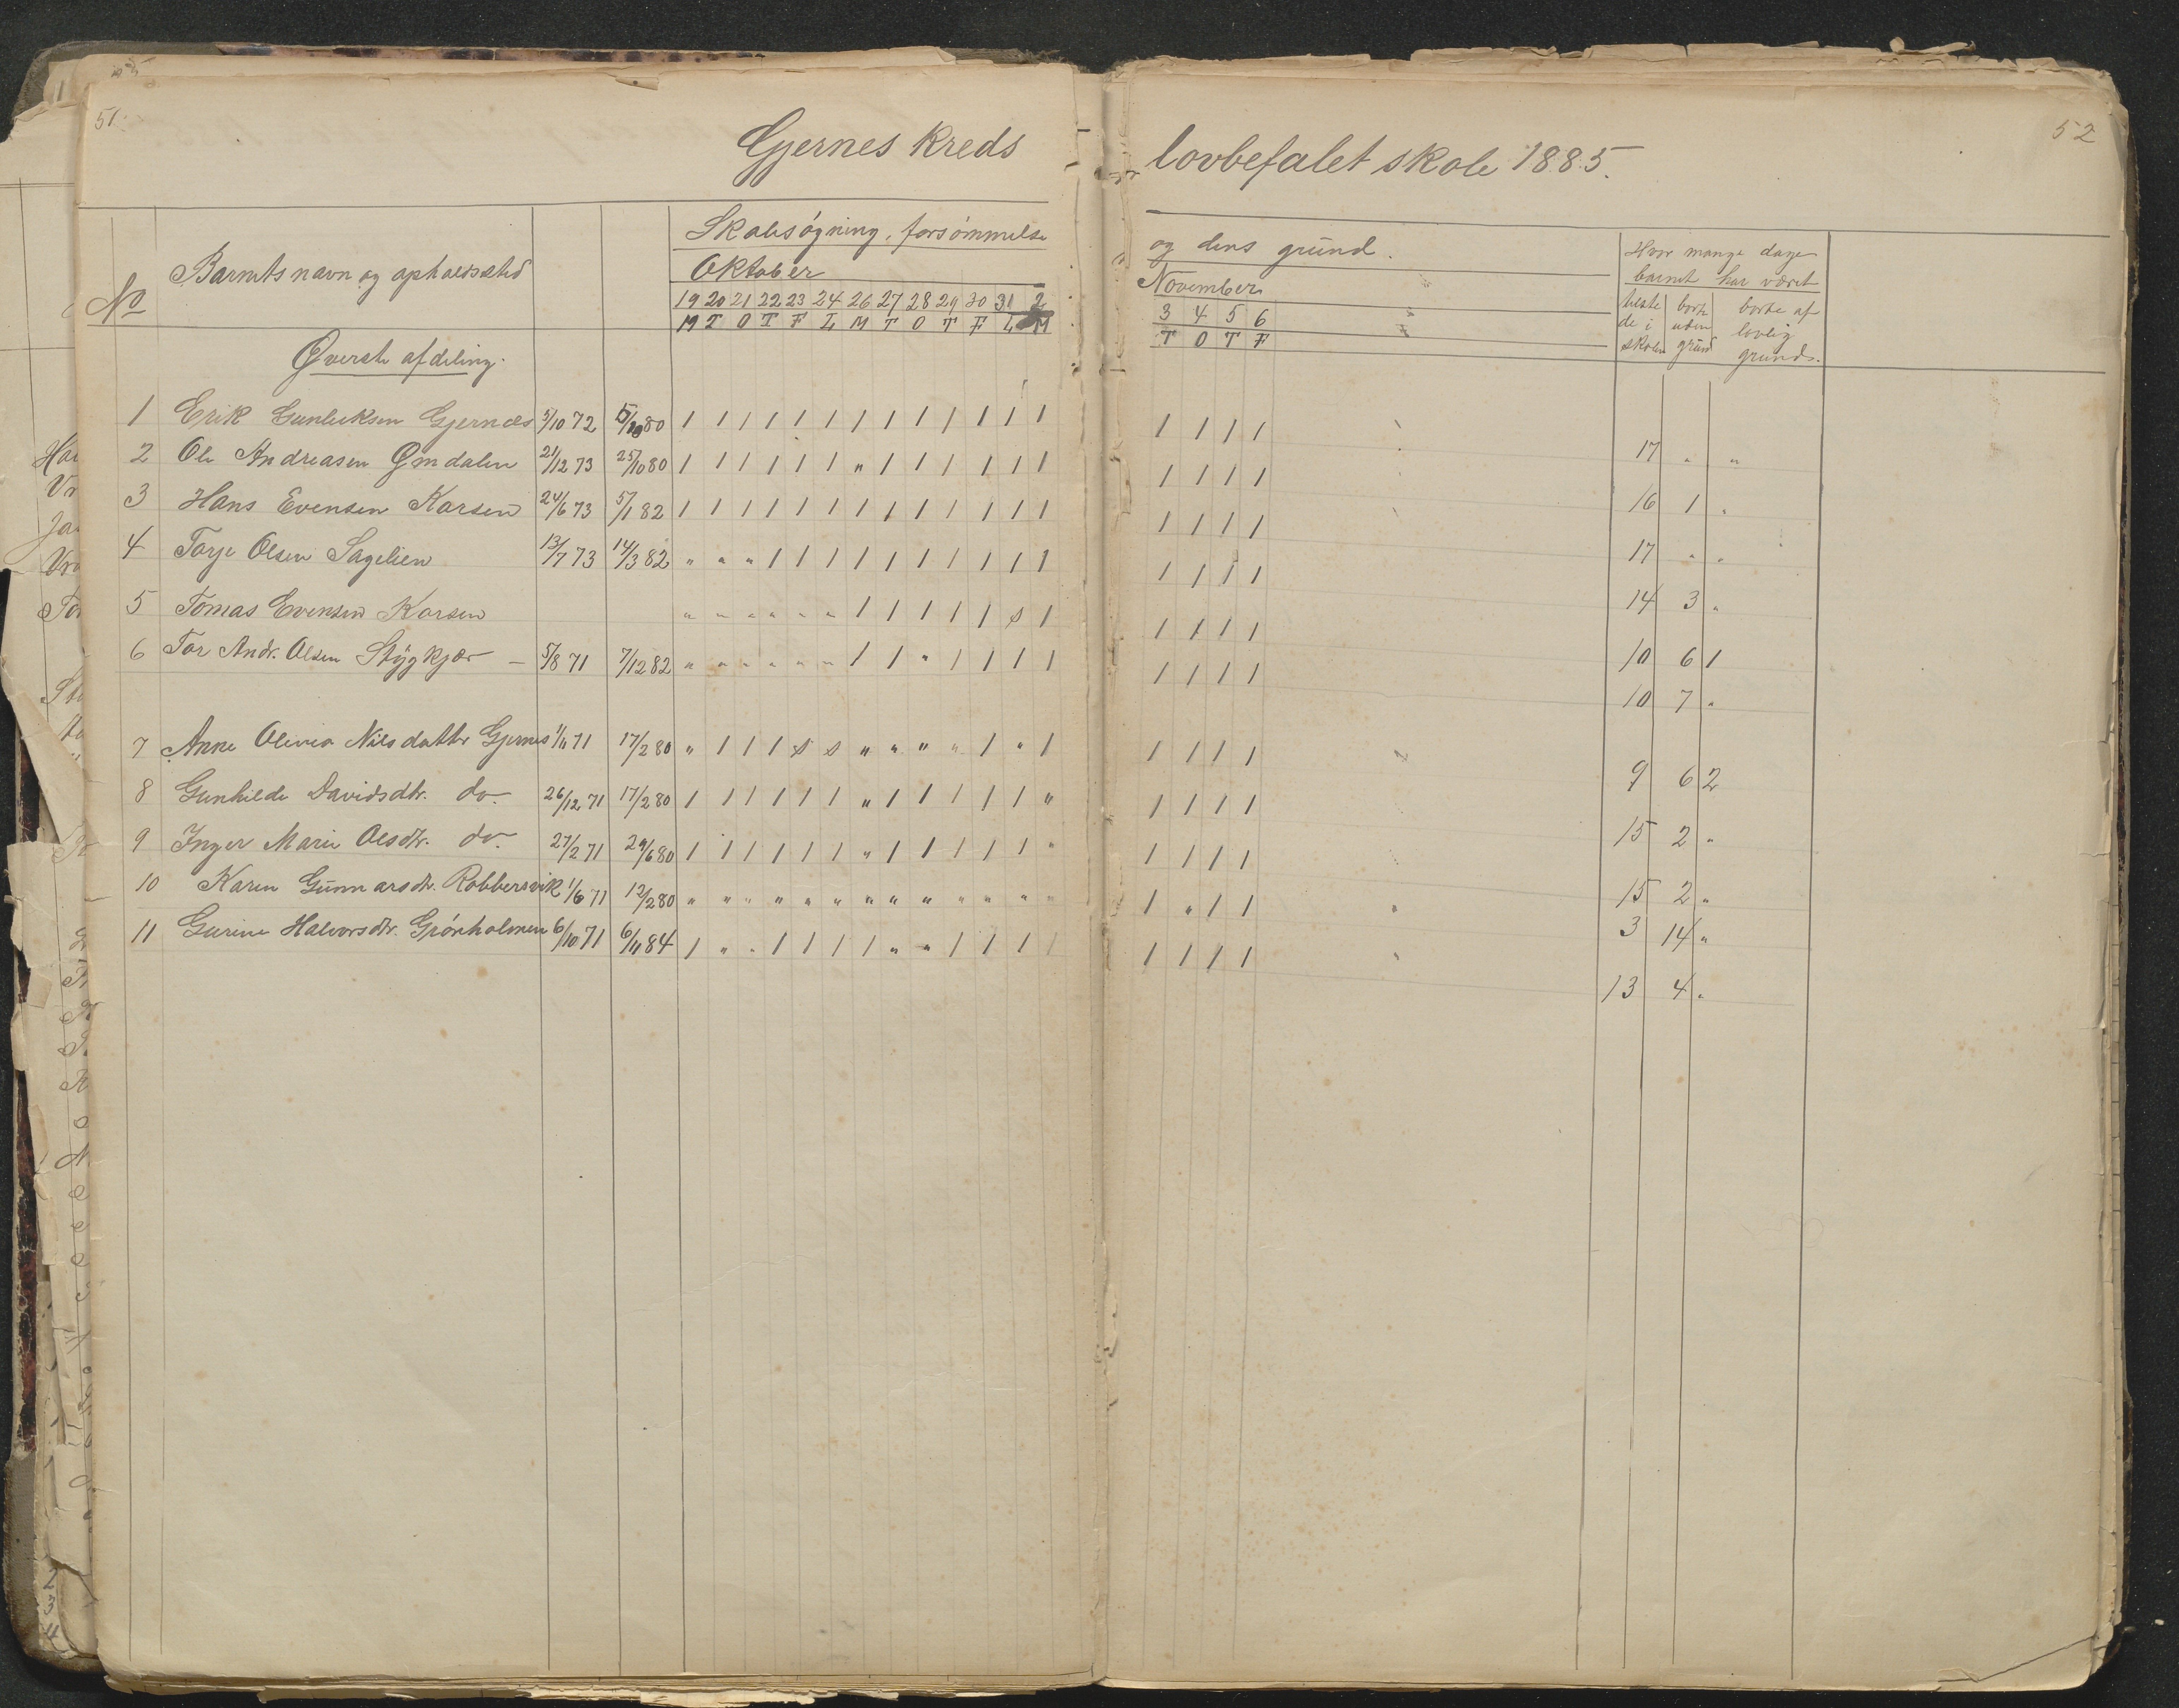 51.
52
Gjernes Kreds lovbefalet skole 1885.
No Barnets navn og opholdssted Skolesøgning, forsømmelse og dens grund. Hvor mange dage barnet har været
Oktober November tilstede i skolen borte uden grund borte af lovlig grund.
19 20 21 22 23 24 26 27 28 29 30 31 2 3 4 5 6
M T O T F L M T O T F L M T O T F
Øverste afdeling.
1 Erik Gunleksen Gjernæs 5/10 72 80 1 1 1 1 1 1 1 1 1 1 1 1 1 1 1 1 1 17 " "
2 Ole Andreasen Ømdalen 21/12 73 25/10 80 1 1 1 1 1 1 " 1 1 1 1 1 1 1 1 1 1 16 1 "
3 Hans Evensen Karsen 24/6 73 5/1 82 1 1 1 1 1 1 1 1 1 1 1 1 1 1 1 1 1 17 " "
4 Tarje Olsen Sagelien 13/7 73 14/3 82 " " " 1 1 1 1 1 1 1 1 1 1 1 1 1 1 14 3 "
5 Tomas Evensen Karsen " " " " " " 1 1 1 1 1 s 1 1 1 1 1 10 6 1
6 Tor Andr. Olsen Støgkjær – 5/8 71 7/12 82 " " " " " " 1 1 " 1 1 1 1 1 1 1 1 10 7 "
7 Anne Olivia Nilsdatter Gjernes 1/11 71 17/2 80 " 1 1 1 s s " " " " 1 " 1 1 1 1 1 9 6 2
8 Gunhilde Davidsdtr. do. 26/12 71 17/2 80 1 1 1 1 1 1 " 1 1 1 1 1 " 1 1 1 1 15 2 "
9 Inger Marie Olsdtr. do. 27/2 71 29/6 80 1 1 1 1 1 1 " 1 1 1 1 1 " 1 1 1 1 15 2 "
10 Karen Gunnarsdtr. Robbersvik 1/6 71 12/2 80 " " " " " " " " " " " " " 1 " 1 1 3 14 "
11 Gurine Halvorsdtr. Grønholmen 6/10 71 6/11 84 1 " " 1 1 1 1 " " 1 1 1 1 1 1 1 1 13 4 "